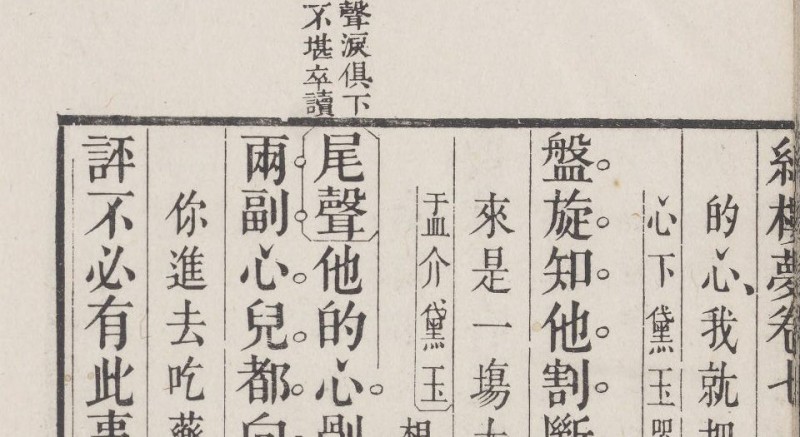 聲淚俱下
不堪卒讀
紅樓夢卷
的心我就把
心下黛玉
盤旋知他割斷
來是一塲
盂介黛玉
相
尾聲他的心
兩副心兒都向
你進去吃藥
評不必有此事